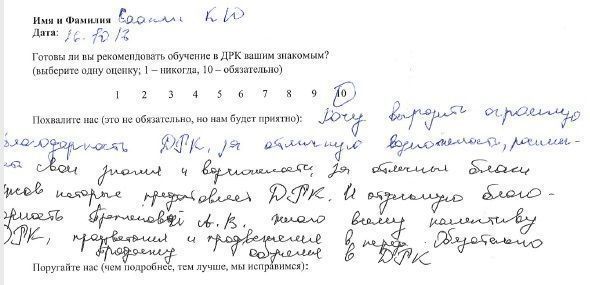 Имя и Фамилия
Дата: 16.10.13
Готовы ли вы рекомендовать обучение в ДРК вашим знакомым?
(выберите одну оценку; 1 – никогда, 10 – обязательно)
1 2 3 4 5 6 7 8 9 10
Похвалите нас (это не обязательно, но нам будет приятно): Хочу выразить огромную
благодарность ДРК, за отличную возможность,
свои знания и возможности, за отличные
которые предоставляет ДРК. И отдельную благо-
А.В. всему коллективу
ДРК, процветания и продвижения в Обязательно
в ДРК
Поругайте нас (чем подробнее, тем лучше, мы исправимся):